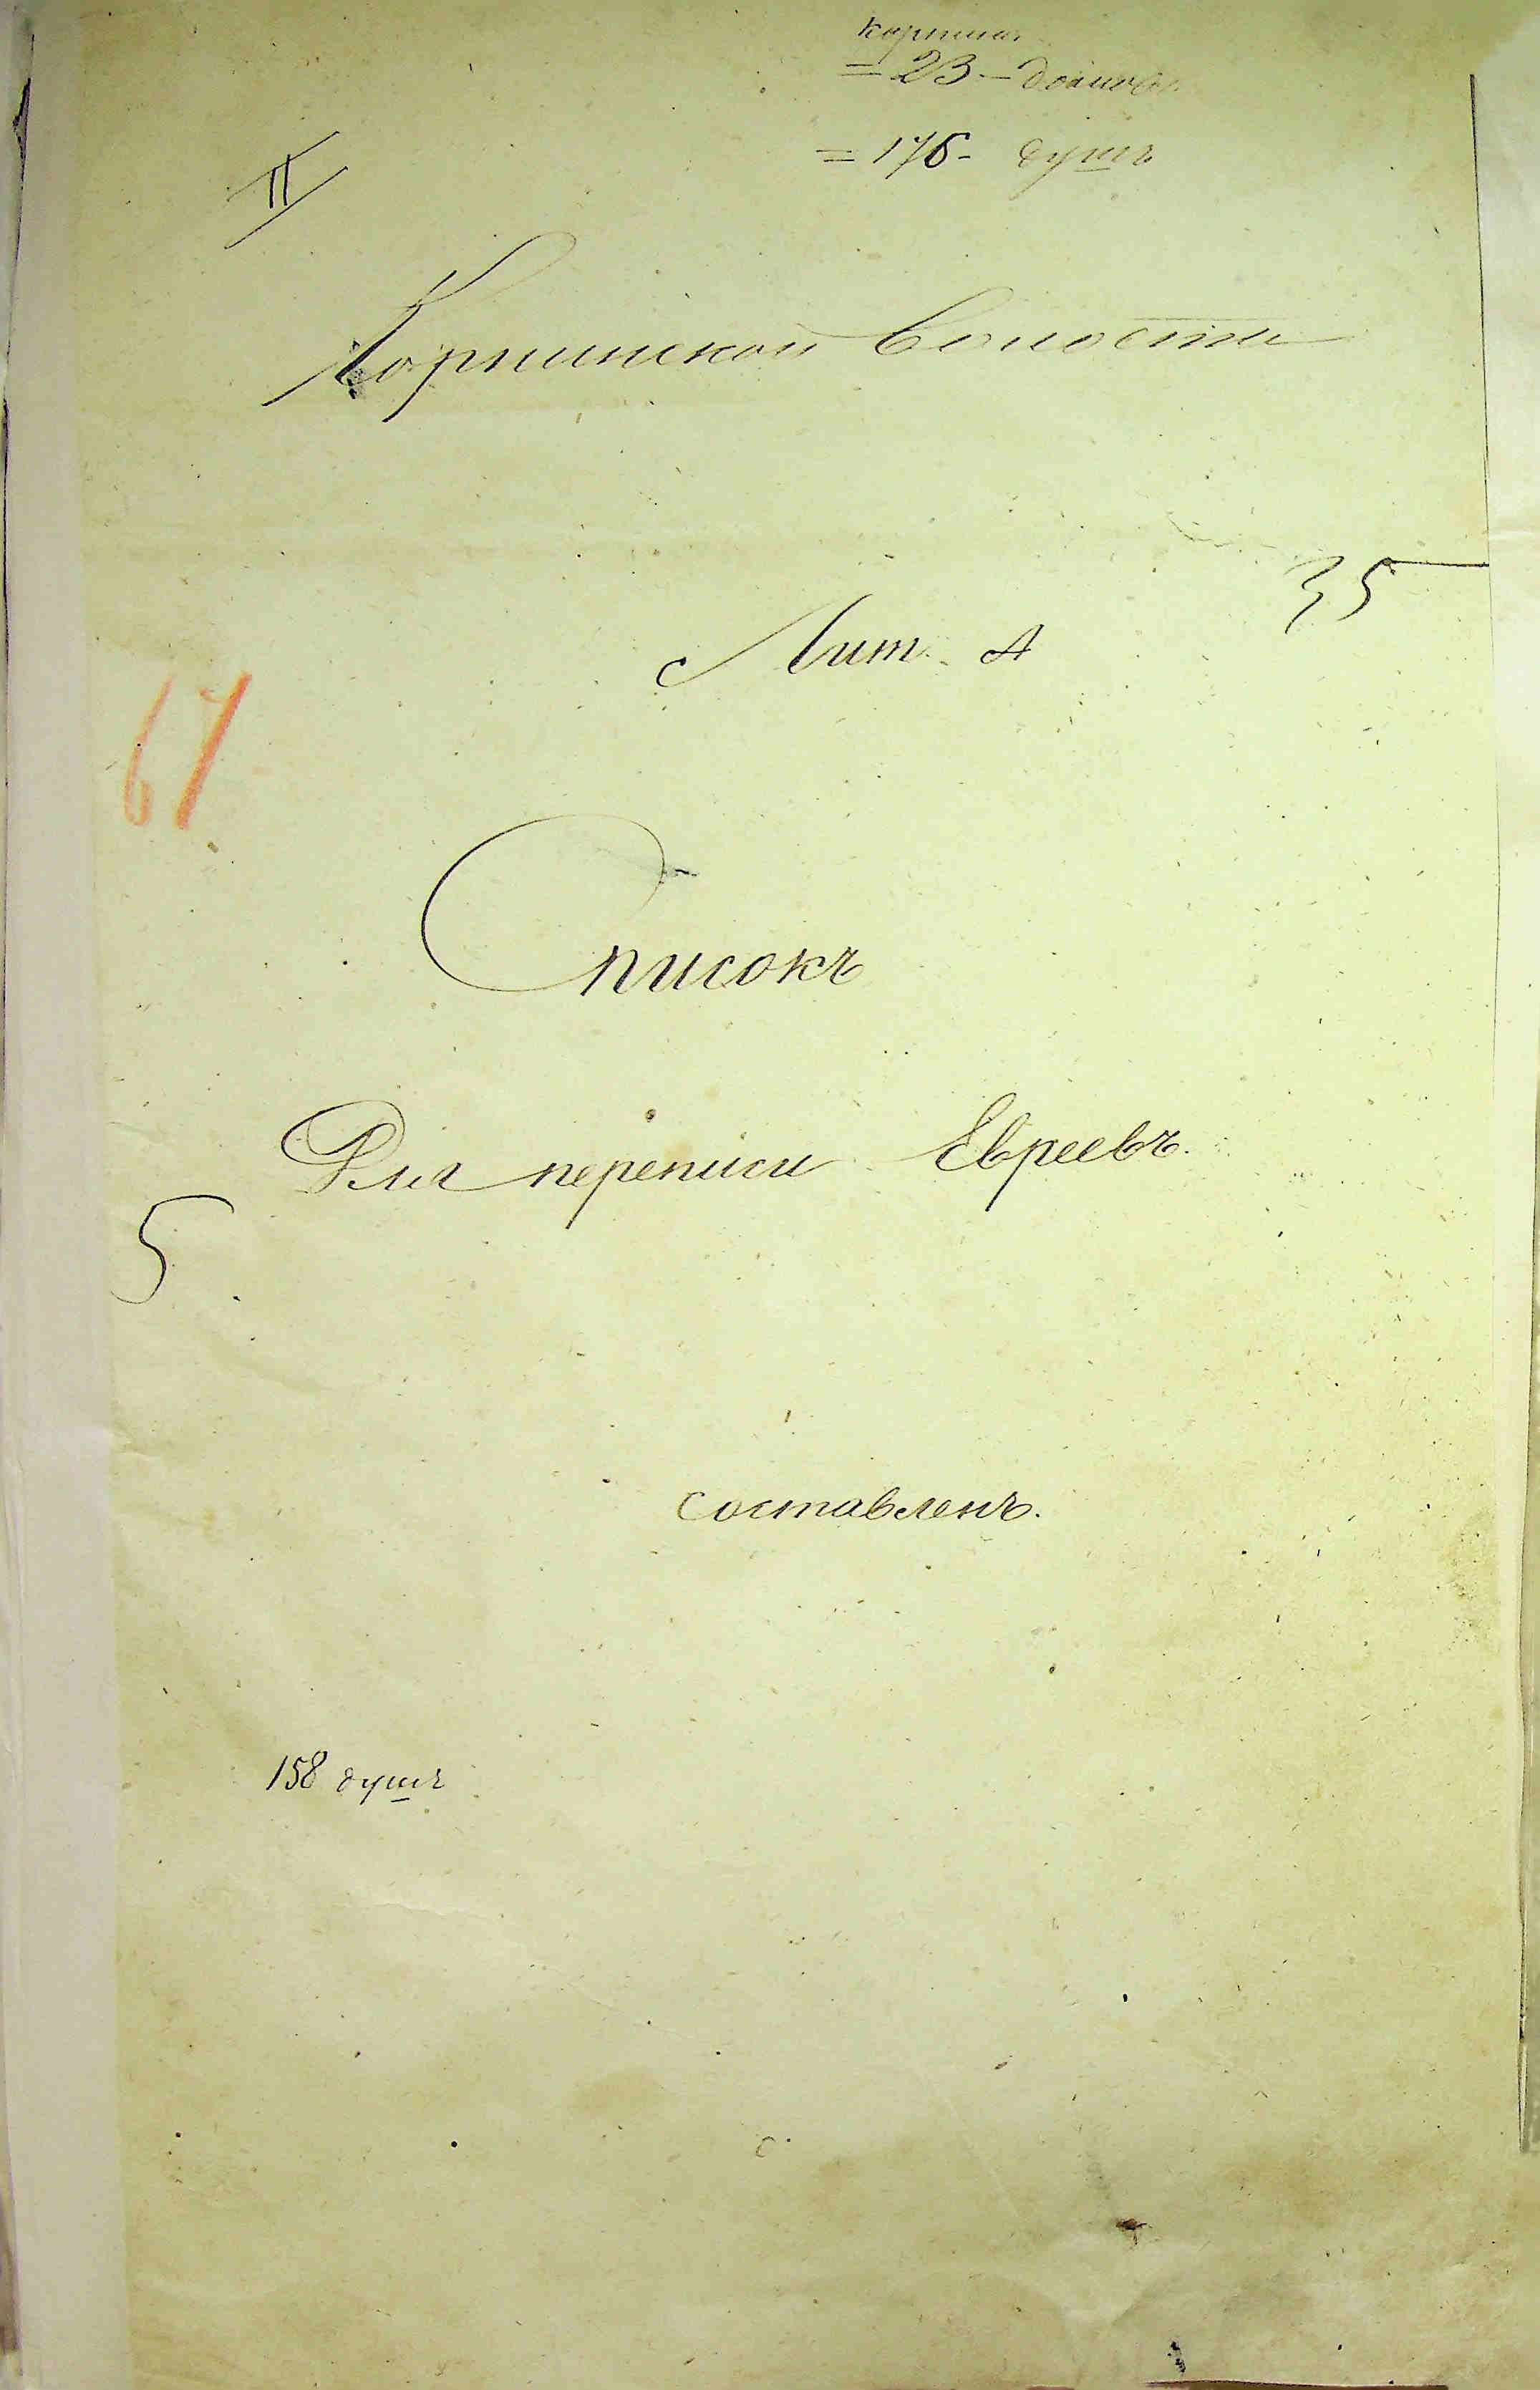 Корнин
= 23 - домов
= 176 - душъ
II
Корнинской волости
35
Лит. А
67
Списокъ
Для переписи Евреевъ.
5
составленъ.
158 душъ